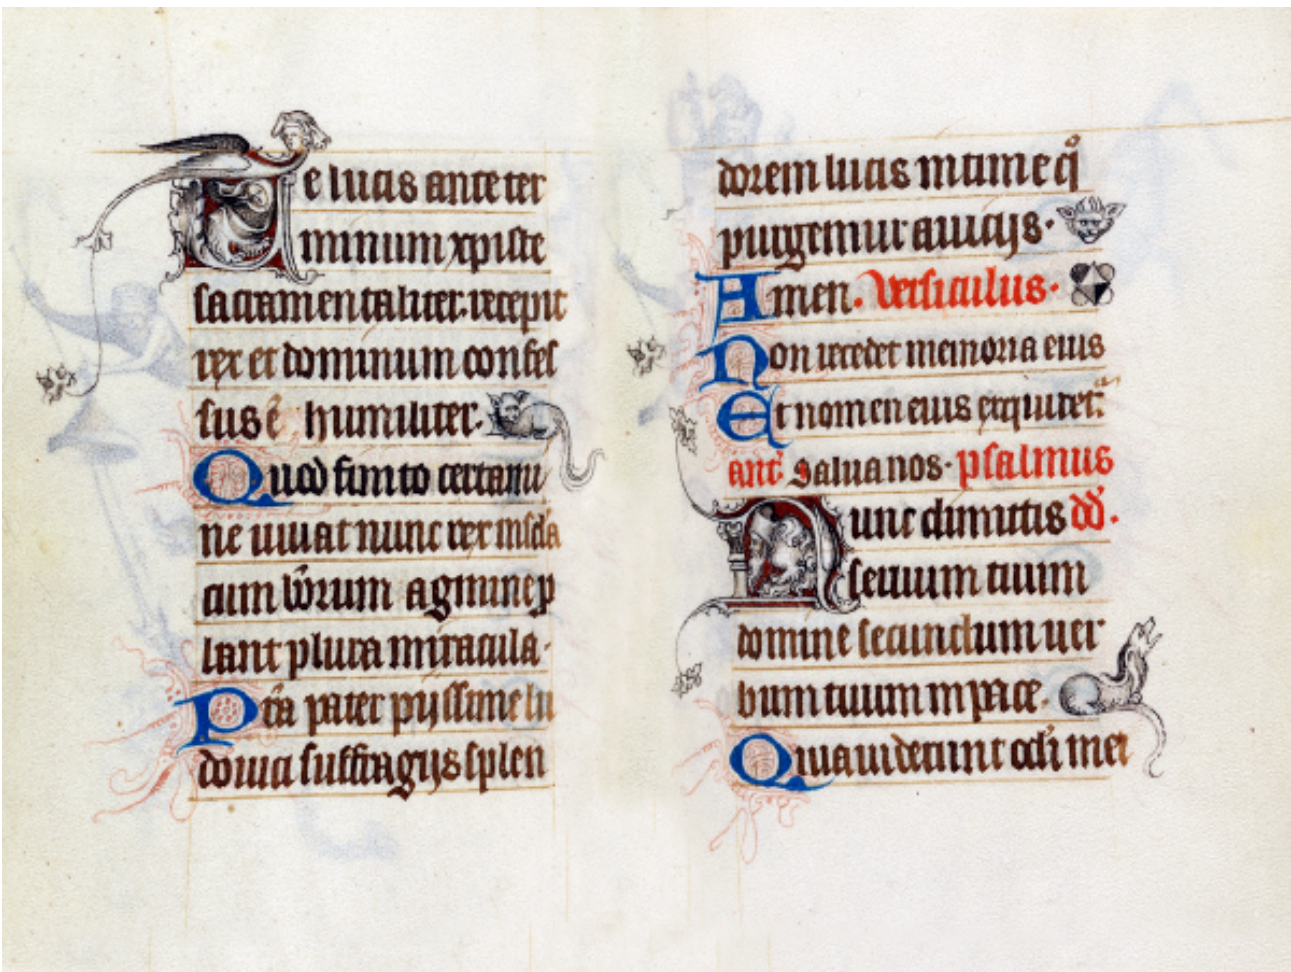 Te lucis ante ter
minum xpiste
sacramentaliter. recepit
rex et dominum confes
sus ē humiliter.
Quod finito certami
ne uiuat nunc rex in scīa
cum vīrorum agmine ꝑ
lant plura miracula.
Prā pater pijssime lu
douici suffragijs splen
dorem lucis intime qͦ
purgemur a uicijs.
Amen. Versiculus.
Non recedet memoria eius
Et nomen eius req̇uiretᷣ.
ant̄ Salua nos. psalmus
Nunc dimittis dd̄.
seruum tuum
domine secundum uer
bum tuum in pace.
Quia uiderunt oculi mei